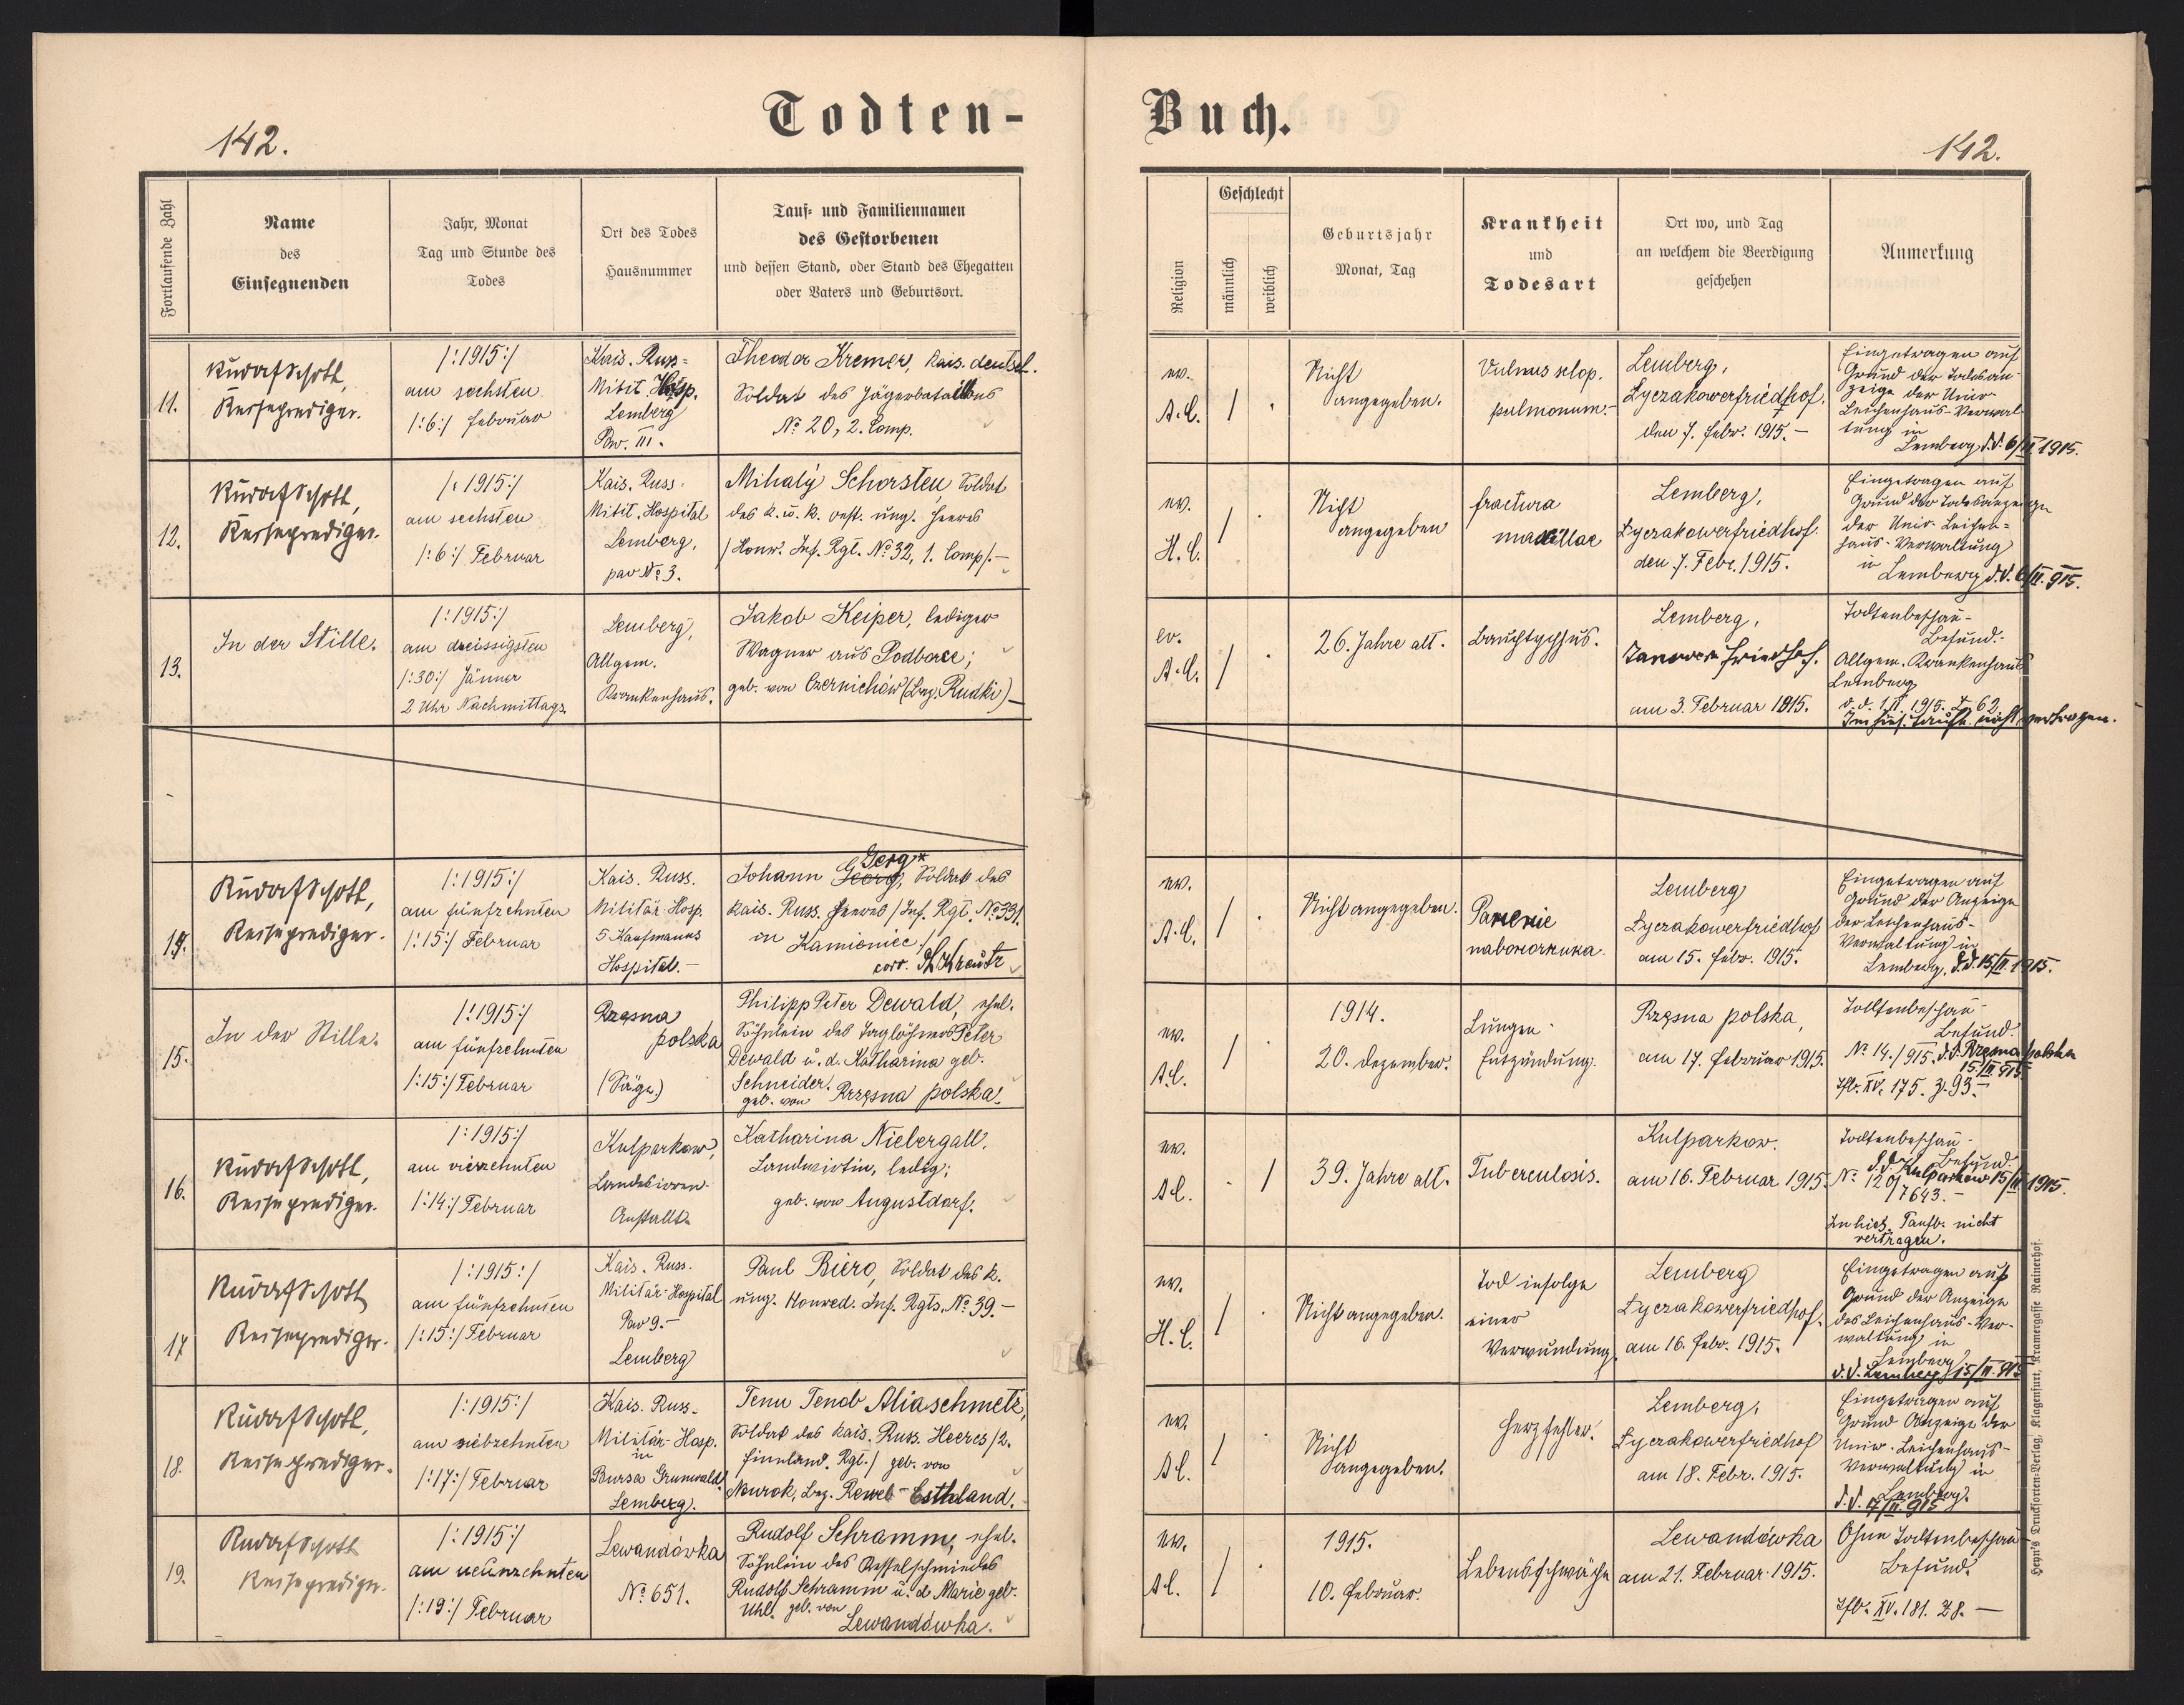 Todten-
Buch.
142.
142.
Fortlaufende Zahl
Name
des
Einsegnenden
Jahr, Monat
Tag und Stunde des
Todes
Ort des Todes
Hausnummer
Tauf- und Familiennamen
des Gestorbenen
und dessen Stand, oder Stand des Ehegatten
oder Vaters und Geburtsort.
Religion
Geschlecht
männlich
weiblich
Geburtsjahr
Monat, Tag
Krankheit
und
Todesart
Ort wo, und Tag
an welchem die Beerdigung
geschehen
Anmerkung
11.
Rudolf Schott,
Reiseprediger.
/:1915:/
am sechsten
/:6:/ Februar
Kais. Russ=
Milit. Hosp.
Lemberg
Paw. III.
Theodor Kremer, kais. deutsch.
Soldat des Jägerbataillons
No 20, 2. Comp.
ev.
A.C.
/
Nicht
angegeben.
Vulnus sclop.
pulmonum.-
Lemberg,
Lyczakowerfriedhof.
den 7. Febr. 1915.-
Eingetragen auf
Grund der Todesan-
zeige der Univ-
Leichenhaus-Verwal-
tung in
Lemberg d.d. 6/II. 1915.
12.
Rudolf Schott,
Reiseprediger.
/:1915:/
am sechsten
/:6:/ Februar
Kais. Russ.
Milit. Hospital
Lemberg,
pav No 3.
Mihalý Schorsten, Soldat
des k. u. k. oest. ung. Heeres
/Honv. Inf. Rgt. No 32, 1. Comp/.-
ev.
H.C.
/
Nicht
angegeben
fractura
maxillae
Lemberg,
Lyczakowerfriedhof.
den 7. Febr. 1915.
Eingetragen auf
Grund der Todesanzeige
der Univ. Leichen=
haus-Verwaltung
in
Lemberg d.d. 6/II. 915.
13.
In der Stille.
/:1915:/
am dreissigsten
/:30:/ Jänner
2 Uhr Nachmittags.
Lemberg,
Allgem.
Krankenhaus.
Jakob Keiper, lediger
Wagner aus Podborce;
geb. von Czernichów (Bez. Rudki)-
ev.
A.C.
/
26. Jahre alt.
Bauchtyphus.
Lemberg,
Janower Friedhof.
am 3. Februar 1915.
Todtenbeschau-
Befund.-
Allgem. Krankenhaus
Lemberg
d.d. 1./II. 1915. Z. 62.
Im hies. Taufb. nicht vertragen.
14.
Rudolf Schott,
Reiseprediger.
/:1915:/
am fünfzehnten
/:15:/ Februar
Kais. Russ.
Militär-Hosp.
5 Kaufmanns
Hospital.-
Johann Georg, Soldat des
Gerg*
kais. Russ. Heeres /Inf. Rgt. No 331.
in Kamieniec/
corr. Th. Kreutz
ev.
A.C.
/
Nicht angegeben.
Lemberg
Lyczakowerfriedhof
am 15. Febr. 1915.
Eingetragen auf
Grund der Anzeige
der Leichenhaus-
Verwaltung in
Lemberg, d.d. 15/II. 1915.
15.
In der Stille.
/:1915:/
am fünfzehnten
/:15:/ Februar
Rzęsna
polska
(Säge.)
Philipp Peter Dewald, ehel.
Söhnlein des Taglöhners Peter
Dewald u. d. Katharina geb.
Schneider.
geb. von Rzęsna polska.
ev.
A.C.
/
1914.
20. Dezember.
Lungen-
Entzündung.
Rzęsna polska,
am 17. Februar 1915.
Todtenbeschau-
Befund
No 14./915. d.d. Rzęsna polska
15./II. 915
Tfb. XV. 175. Z. 93.-
16.
Rudolf Schott,
Reiseprediger.
/:1915:/
am vierzehnten
/:14:/ Februar
Kulparkow,
Landesirren-
Anstallt.
Katharina Niebergall.
Landwirtin, ledig;
geb. von Augustdorf.
ev.
A.C.
/
39. Jahre alt.
Tuberculosis.
Kulparkow.
am 16. Februar 1915.
Todtenbeschau-
Befund.
d.d. Kulparkow 15/II. 1915.
No 120/
/7643.-
In hies. Taufb. nicht
vertragen.
17
Rudolf Schott
Reiseprediger.
/:1915:/
am fünfzehnten
/:15:/ Februar
Kais. Russ.
Militär-Hospital
Paw 9.-
Lemberg
Paul Biero, Soldat des k.
ung. Honved. Inf. Rgts. No 39.-
ev.
H.C.
/
Nicht angegeben.
Tod infolge
einer
Verwundung.
Lemberg
Lyczakowerfriedhof.
am 16. Febr. 1915.
Eingetragen auf
Grund der Anzeige
des Leichenhaus-Ver-
waltung in
Lemberg
d.d. Lemberg 15/II. 915
18.
Rudolf Schott,
Reiseprediger.
/:1915:/
am siebzehnten
/:17:/ Februar
Kais. Russ.
Militär-Hosp.
in
Bursa Grunwald.
Lemberg.
Tenu Tenob Aliaschmetz,
Soldat des kais. Russ. Heeres /2.
Finnland. Rgt./ geb. von
Nourok, Bez. Rewel-Esthland.
ev.
A.C.
/
Nicht
angegeben.
Herzfehler.
Lemberg.
Lyczakowerfriedhof
am 18. Febr. 1915.
Eingetragen auf
Grund Anzeige der
Univ.-Leichenhaus-
Verwaltung in
Lemberg.
d.d. 17/II. 915
19.
Rudolf Schott
Reiseprediger.
/:1915:/
am neunzehnten
/:19:/ Februar
Lewandówka
No 651.
Rudolf Schramm, ehel.
Söhnlein des Kesselschmiedes
Rudolf Schramm u. d. Marie geb.
Uhl. geb. von
Lewandówka.
ev.
A.C.
/
1915.
10. Februar.
Lebensschwäche
Lewandówka
am 21. Februar 1915.
Ohne Todtenbeschau-
Befund.
Tfb. XV. 181. Z 8.-
Heyn's Drucksorten-Verlag, Klagenfurt, Kramergasse Rainerhof.